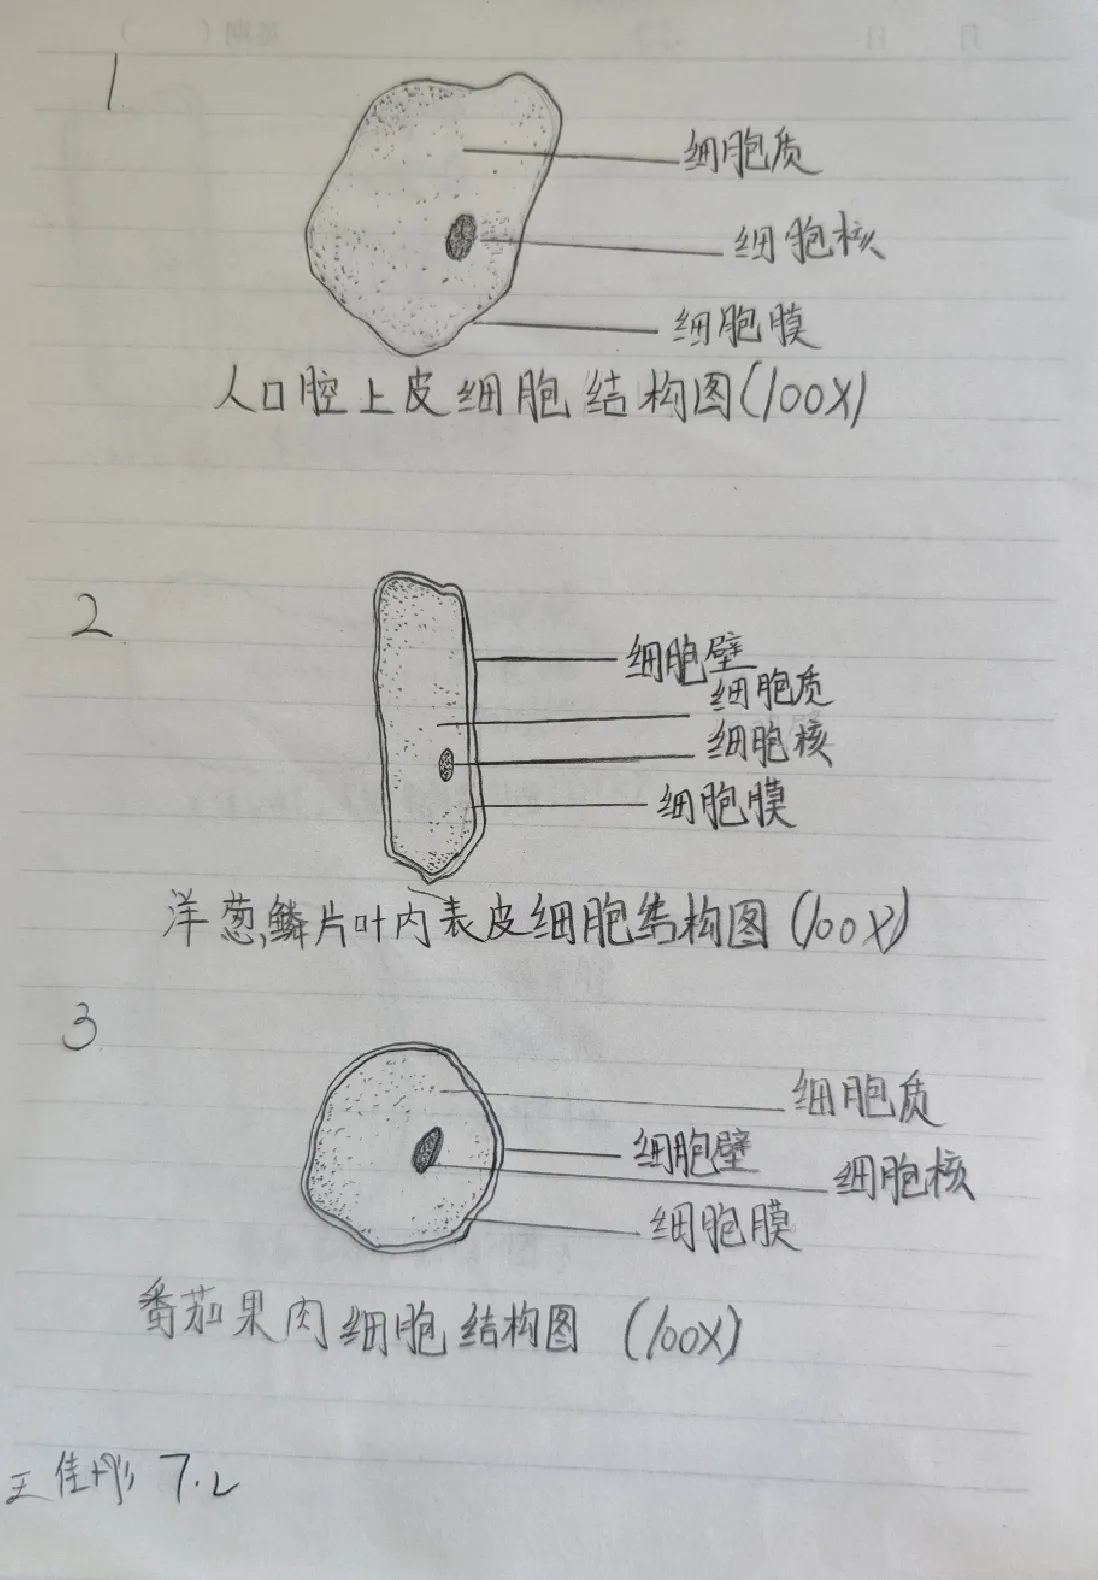 1
细胞质
细胞核
细胞膜
人口腔上皮细胞结构图(100X)
2
细胞壁
细胞质
细胞核
细胞膜
洋葱鳞片叶内表皮细胞结构图(100X)
3
细胞质
细胞壁
细胞核
细胞膜
番茄果肉细胞结构图 (100X)
王佳彤 7.2